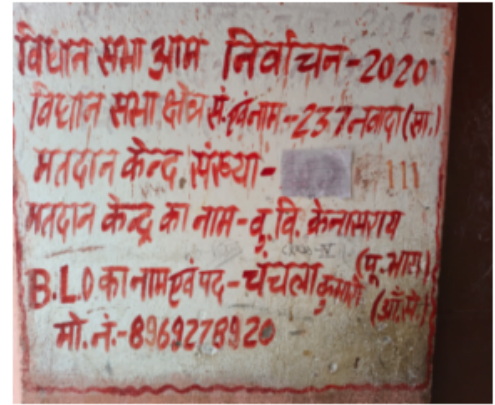 विधान सभा आम निर्वाचन-2020
विधान सभा क्षेत्र सं. एवं नाम-237 नवादा (सा.)
मतदान केन्द्र संख्या- 111
मतदान केन्द्र का नाम-बु. वि. केनासराय (पू. भाग)
B.L.O का नाम एवं पद-चंचला कुमारी (आँ.से)
मो.नं.-8969278920